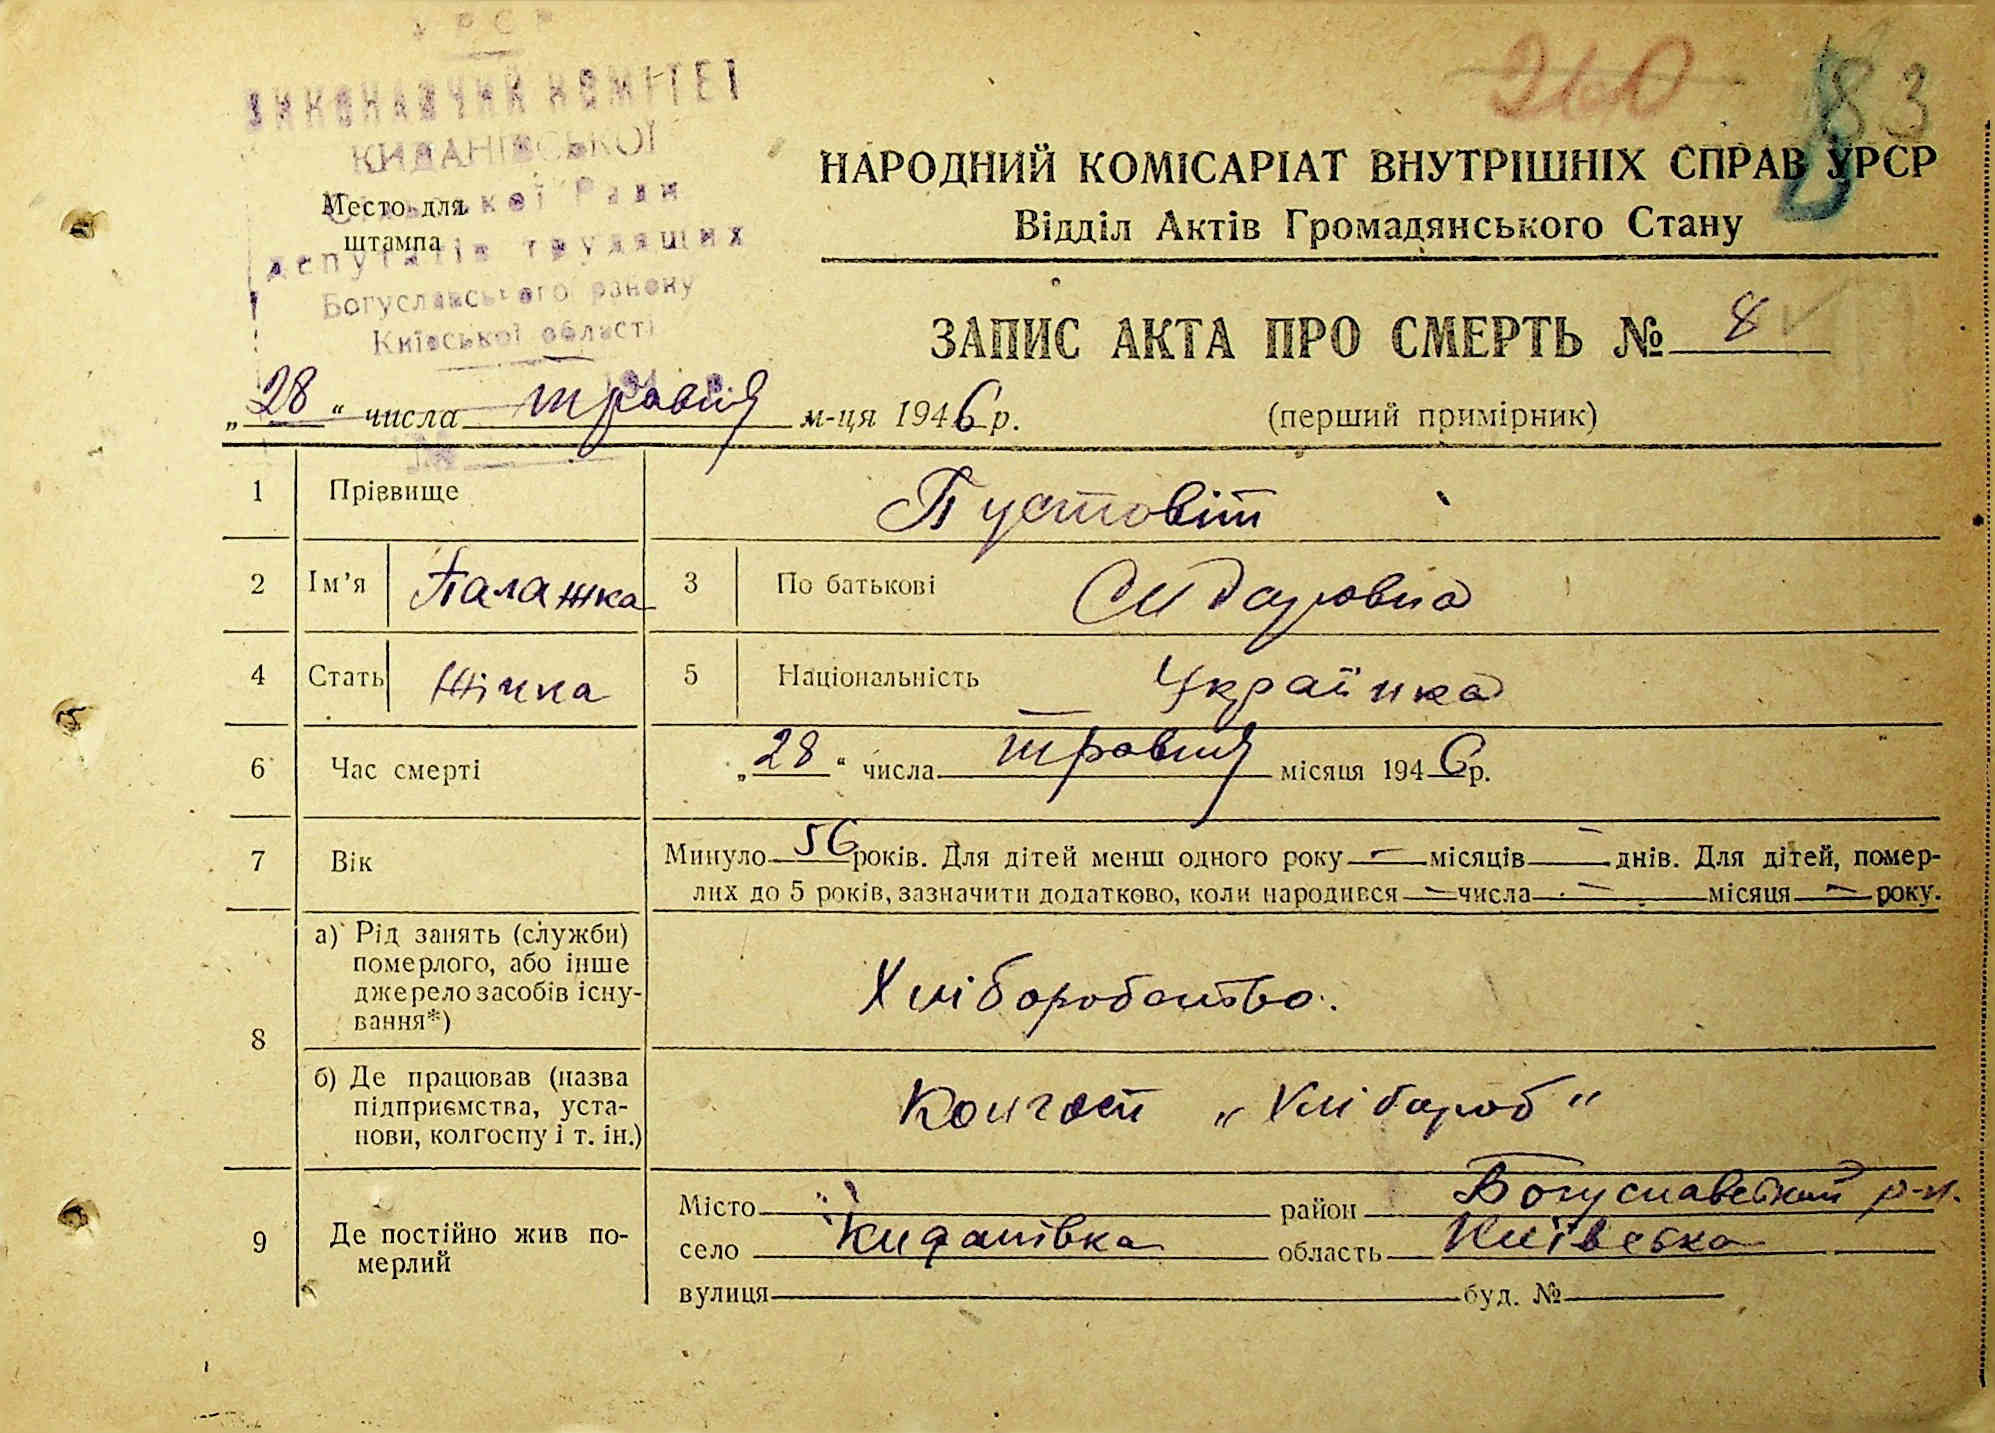 УРСР
ВИКОНАВЧИЙ КОМІТЕТ
КИДАНІВСЬКОЇ
Сільської Ради
депутатів трудящих
Богуславського району
Київської області
Место для
штампа
260
83
НАРОДНИЙ КОМІСАРІАТ ВНУТРІШНІХ СПРАВ УРСР
Відділ Актів Громадянського Стану
ЗАПИС АКТА ПРО СМЕРТЬ № 8
„28“ числа травня м-ця 1946 р.
(перший примірник)
1 Прізвище Пустовіт
2 Ім'я Палажка 3 По батькові Сидаровна
4 Стать Жінка 5 Національність Українка
6 Час смерті „28“ числа травня місяця 1946 р.
7 Вік Минуло 56 років. Для дітей менш одного року — місяців — днів. Для дітей, помер-
лих до 5 років, зазначити додатково, коли народився — числа — місяця — року.
8 а) Рід занять (служби)
померлого, або інше
джерело засобів існу-
вання*)
Хліборобство.
б) Де працював (назва
підприємства, уста-
нови, колгоспу і т. ін.)
Колгосп „Хлібароб“
9 Де постійно жив по-
мерлий
Місто район Богуславський р-н.
село Киданівка область Київська
вулиця буд. №